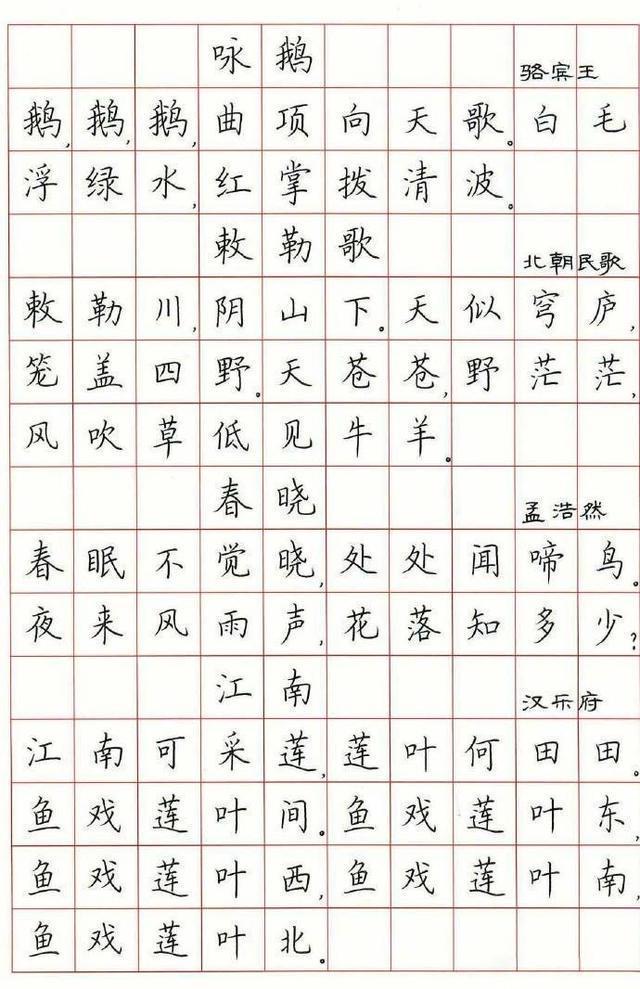 咏鹅
骆宾王
鹅,鹅,鹅,曲项向天歌。白毛
浮绿水,红掌拨清波。
敕勒歌
北朝民歌
敕勒川,阴山下。天似穹庐,
笼盖四野。天苍苍,野茫茫,
风吹草低见牛羊。
春晓
孟浩然
春眠不觉晓,处处闻啼鸟。
夜来风雨声,花落知多少?
江南
汉乐府
江南可采莲,莲叶何田田。
鱼戏莲叶间。鱼戏莲叶东,
鱼戏莲叶西,鱼戏莲叶南,
鱼戏莲叶北。